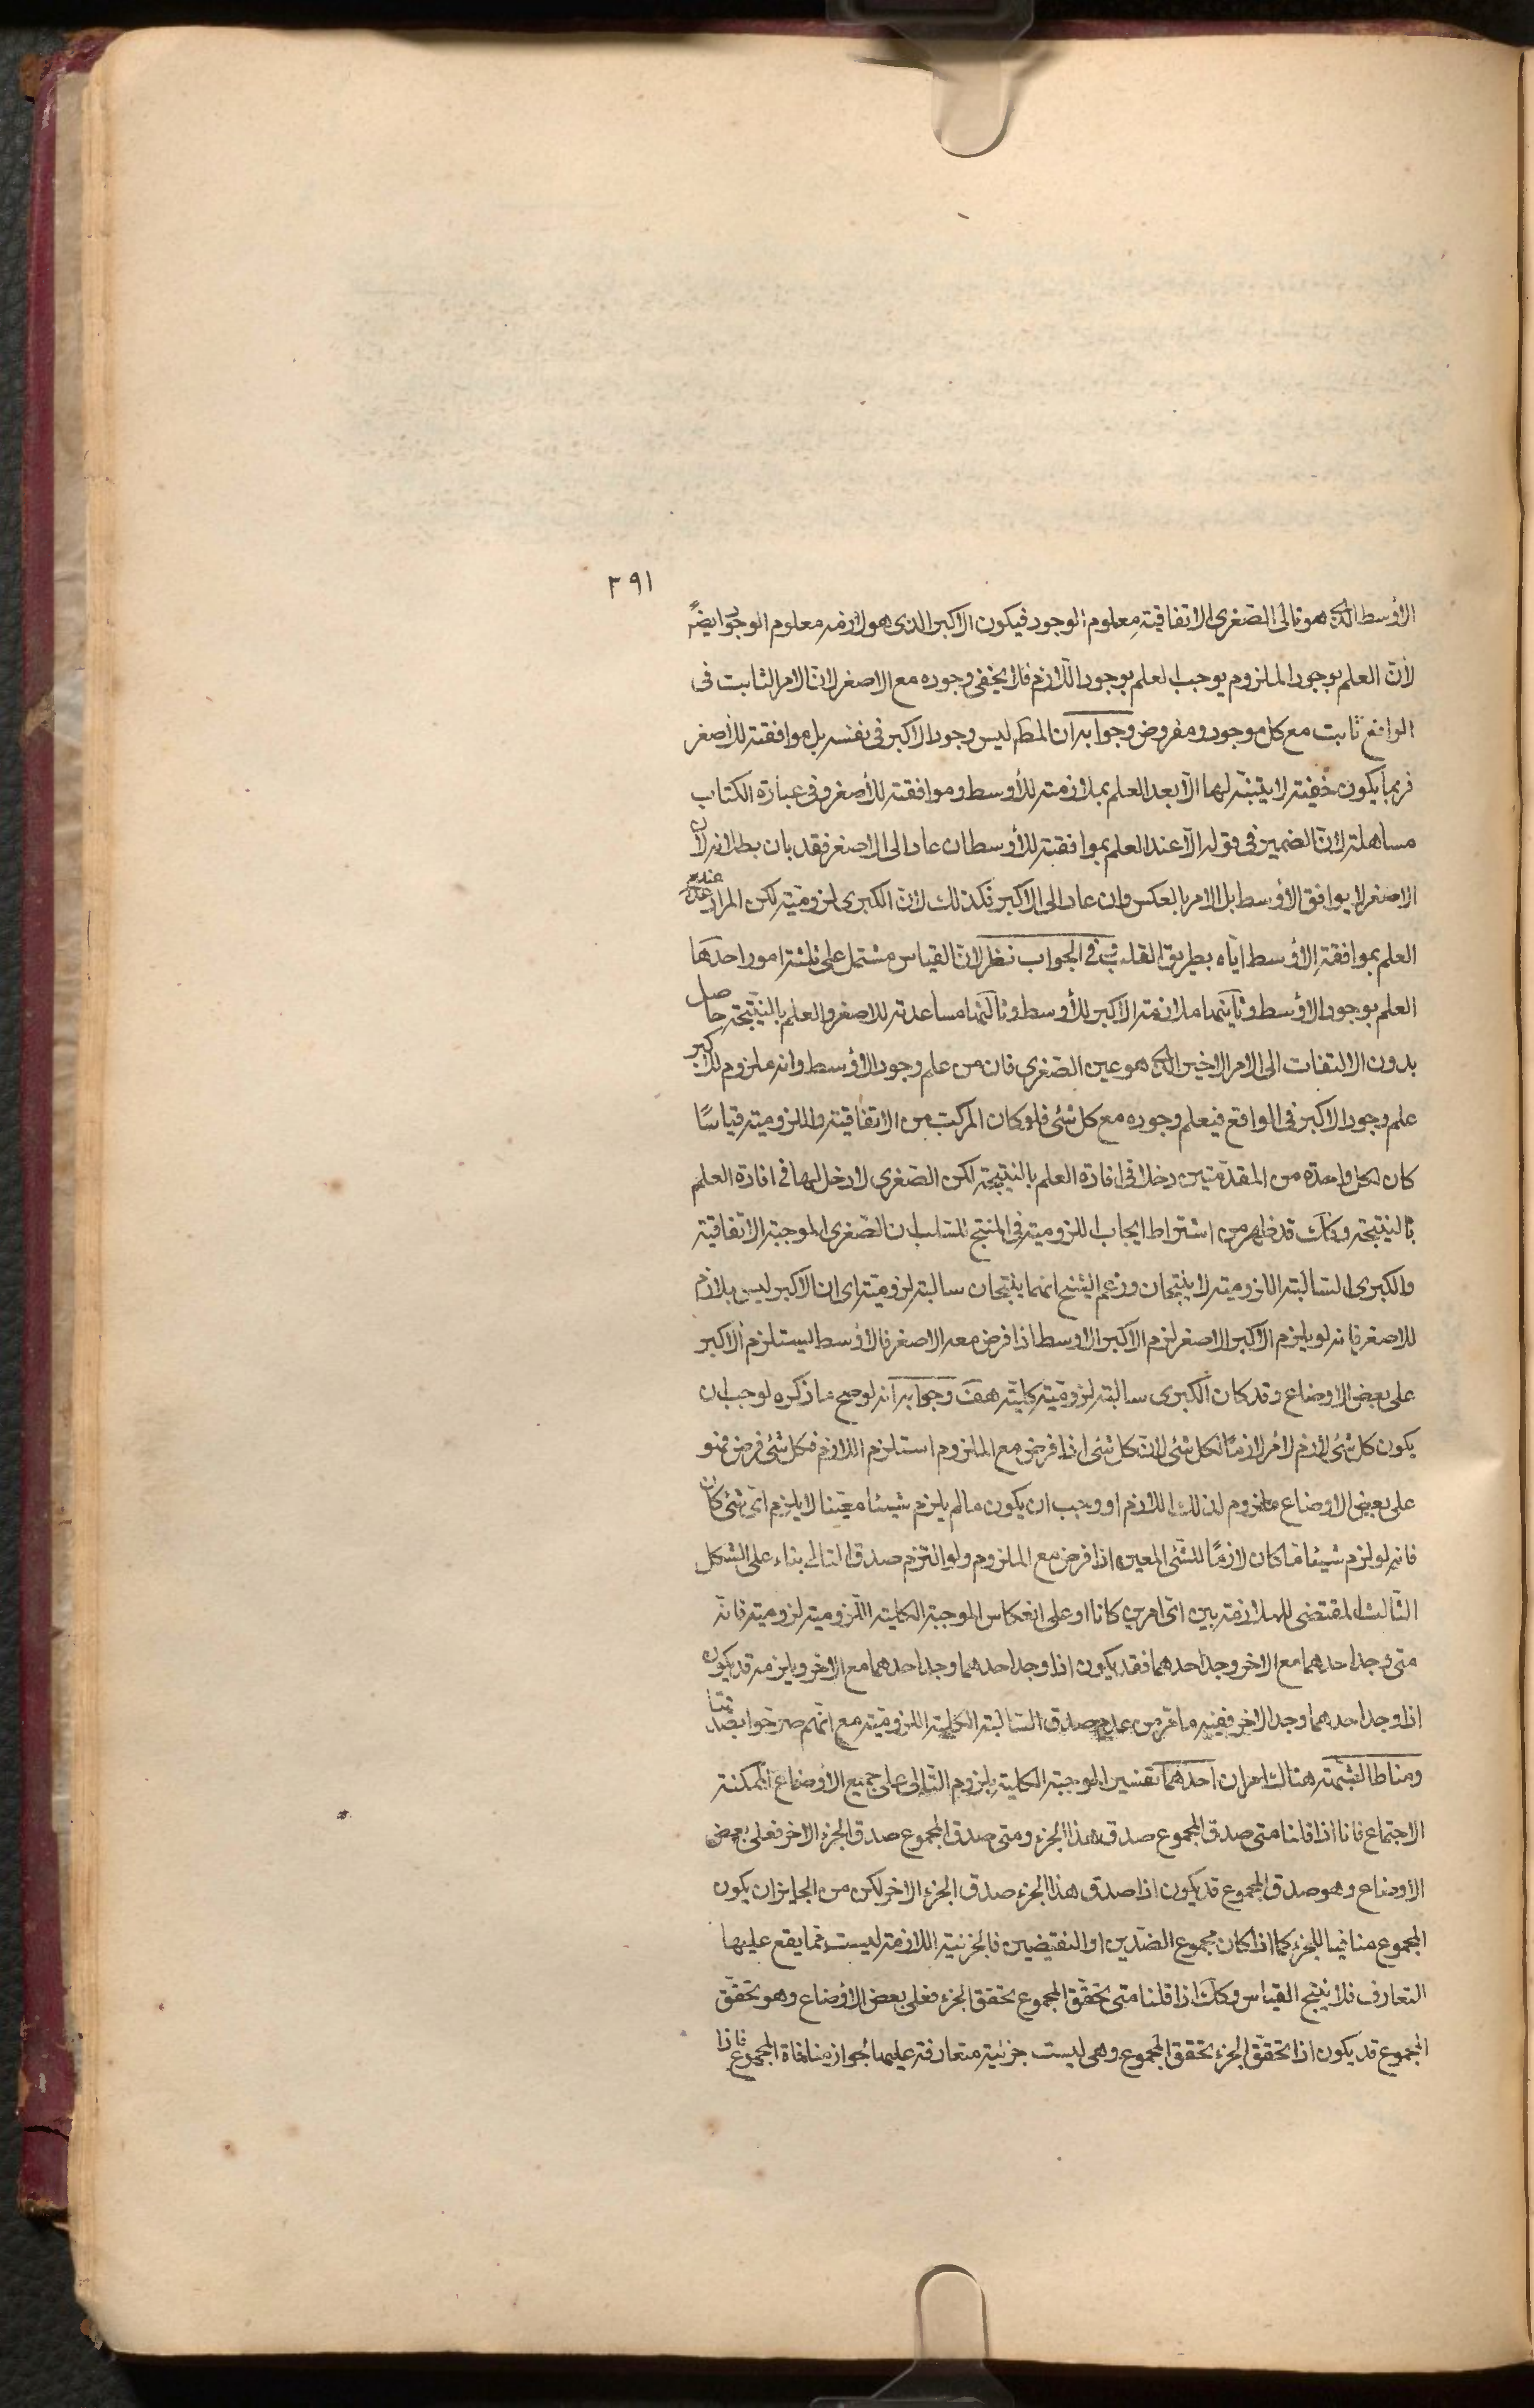 ٣٩١
الأوسط الذى هو تالى الصغرى الاتفاقية معلوم الوجود فيكون الاكبر الذى هو لازمه معلوم الوجود ايضًا
لأن العلم بوجود الملزوم يوجب العلم بوجود اللازم فلا يخفى وجوده مع الاصغر لان الامر الثابت فى
الواقع ثابت مع كل موجود ومفروض وجوابه ان المطم ليس وجود الاكبر فى نفسه بل موافقته للأصغر
فربما يكون خفية لا يتنبه لها الّا بعد العلم بملازمته للأوسط وموافقته للأصغر وفى عبارة الكتاب
مساهلة لانّ الضمير فى قوله الّا عند العلم بموافقته للأوسط ان عاد الى الاصغر فقد بان بطلانه لان
الاصغر لا يوافق الأوسط بل الامر بالعكس وان عاد الى الاكبر فكذلك لانّ الكبرى لزوميّة لكن المراد عند
العلم بموافقة الأوسط ايّاه بطريق القلب وفى الجواب نظر لانّ القياس مشتمل على ثلثة امور احدها
العلم بوجود الأوسط وثانيهما ملازمة الاكبر للأوسط وثالثهما مساعدته للاصغر والعلم بالنتيجة حاصل
بدون الالتفات الى الامر الاخير الذى هو عين الصغرى فان من علم وجود الأوسط وانه ملزوم للاكبر
علم وجود الاكبر فى الواقع فيعلم وجوده مع كل شئ فلو كان المركب من الاتفاقية واللزومية قياسًا
كان لكل واحدة من المقدّمتين دخلا فى افادة العلم بالنتيجة لكن الصغرى لا دخل لها فى افادة العلم
بالنتيجة وكك قد ظهر من اشتراط ايجاب اللزومية فى المنتج للسلب ان الصّغرى الموجبة الاتّفاقية
والكبرى السّالبة اللزومية لا ينتجان وزعم الشيخ انهما ينتجان سالبة لزوميّة اى ان الاكبر ليس بلازم
للاصغر فانه لو يلزم الاكبر الاصغر لزم الاكبر الاوسط اذا فرض معه الاصغر فالأوسط يستلزم الاكبر
على بعض الاوضاع وقد كان الكبرى سالبة لزوميّة كلية هف وجوابه انه لو صح ما ذكره لوجب ان
يكون كل شئ لازم لأمر لازمًا لكل شئ لانّ كل شئ اذا فرض مع الملزوم استلزم اللازم فكل شئ فرض فهو
على بعض الاوضاع ملزوم لذلك اللازم او وجب ان يكون ما لم يلزم شيئا معيّنا لا يلزم اىّ شئ كان
فانه لو لزم شيئا مّا كان لازمًا للشّئ المعين اذا فرض مع الملزوم ولو التزم صدق التالى بناء على الشكل
الثّالث المقتضى للملازمة بين اىّ امرين كانا او على انعكاس الموجبة الكلية اللزومية لزومية فانه
متى وجد احدهما مع الاخر وجد احدهما فقد يكون اذا وجد احدهما وجد احدهما مع الاخر ويلزمه قد يكون
اذا وجد احدهما وجد الاخر ففيه ما مرّ من عدم صدق السّالبة الكلية اللزوميّة مع انّهم صرّحوا بصدقها
ومناط الشبهة هناك امران احدهما تفسير الموجبة الكلية بلزوم التّالى على جميع الأوضاع الممكنة
الاجتماع فانا اذا قلنا متى صدق المجموع صدق هذا الجزء ومتى صدق المجموع صدق الجزء الاخر فعلى بعض
الأوضاع وهو صدق المجموع قد يكون اذا صدق هذا الجزء صدق الجزء الاخر لكن من الجايز ان يكون
المجموع منافيا للجزء كما اذا كان مجموع الضدّين او النقيضين فالجزئية اللازمة ليست مما يقع عليها
التعارف فلا ينتج القياس وكك اذا قلنا متى تحقّق المجموع تحقق الجزء فعلى بعض الأوضاع وهو تحقّق
المجموع قد يكون اذا تحقّق الجزء تحقق المجموع وهى ليست جزئية متعارفة عليها لجواز منافاة المجموع فاذا